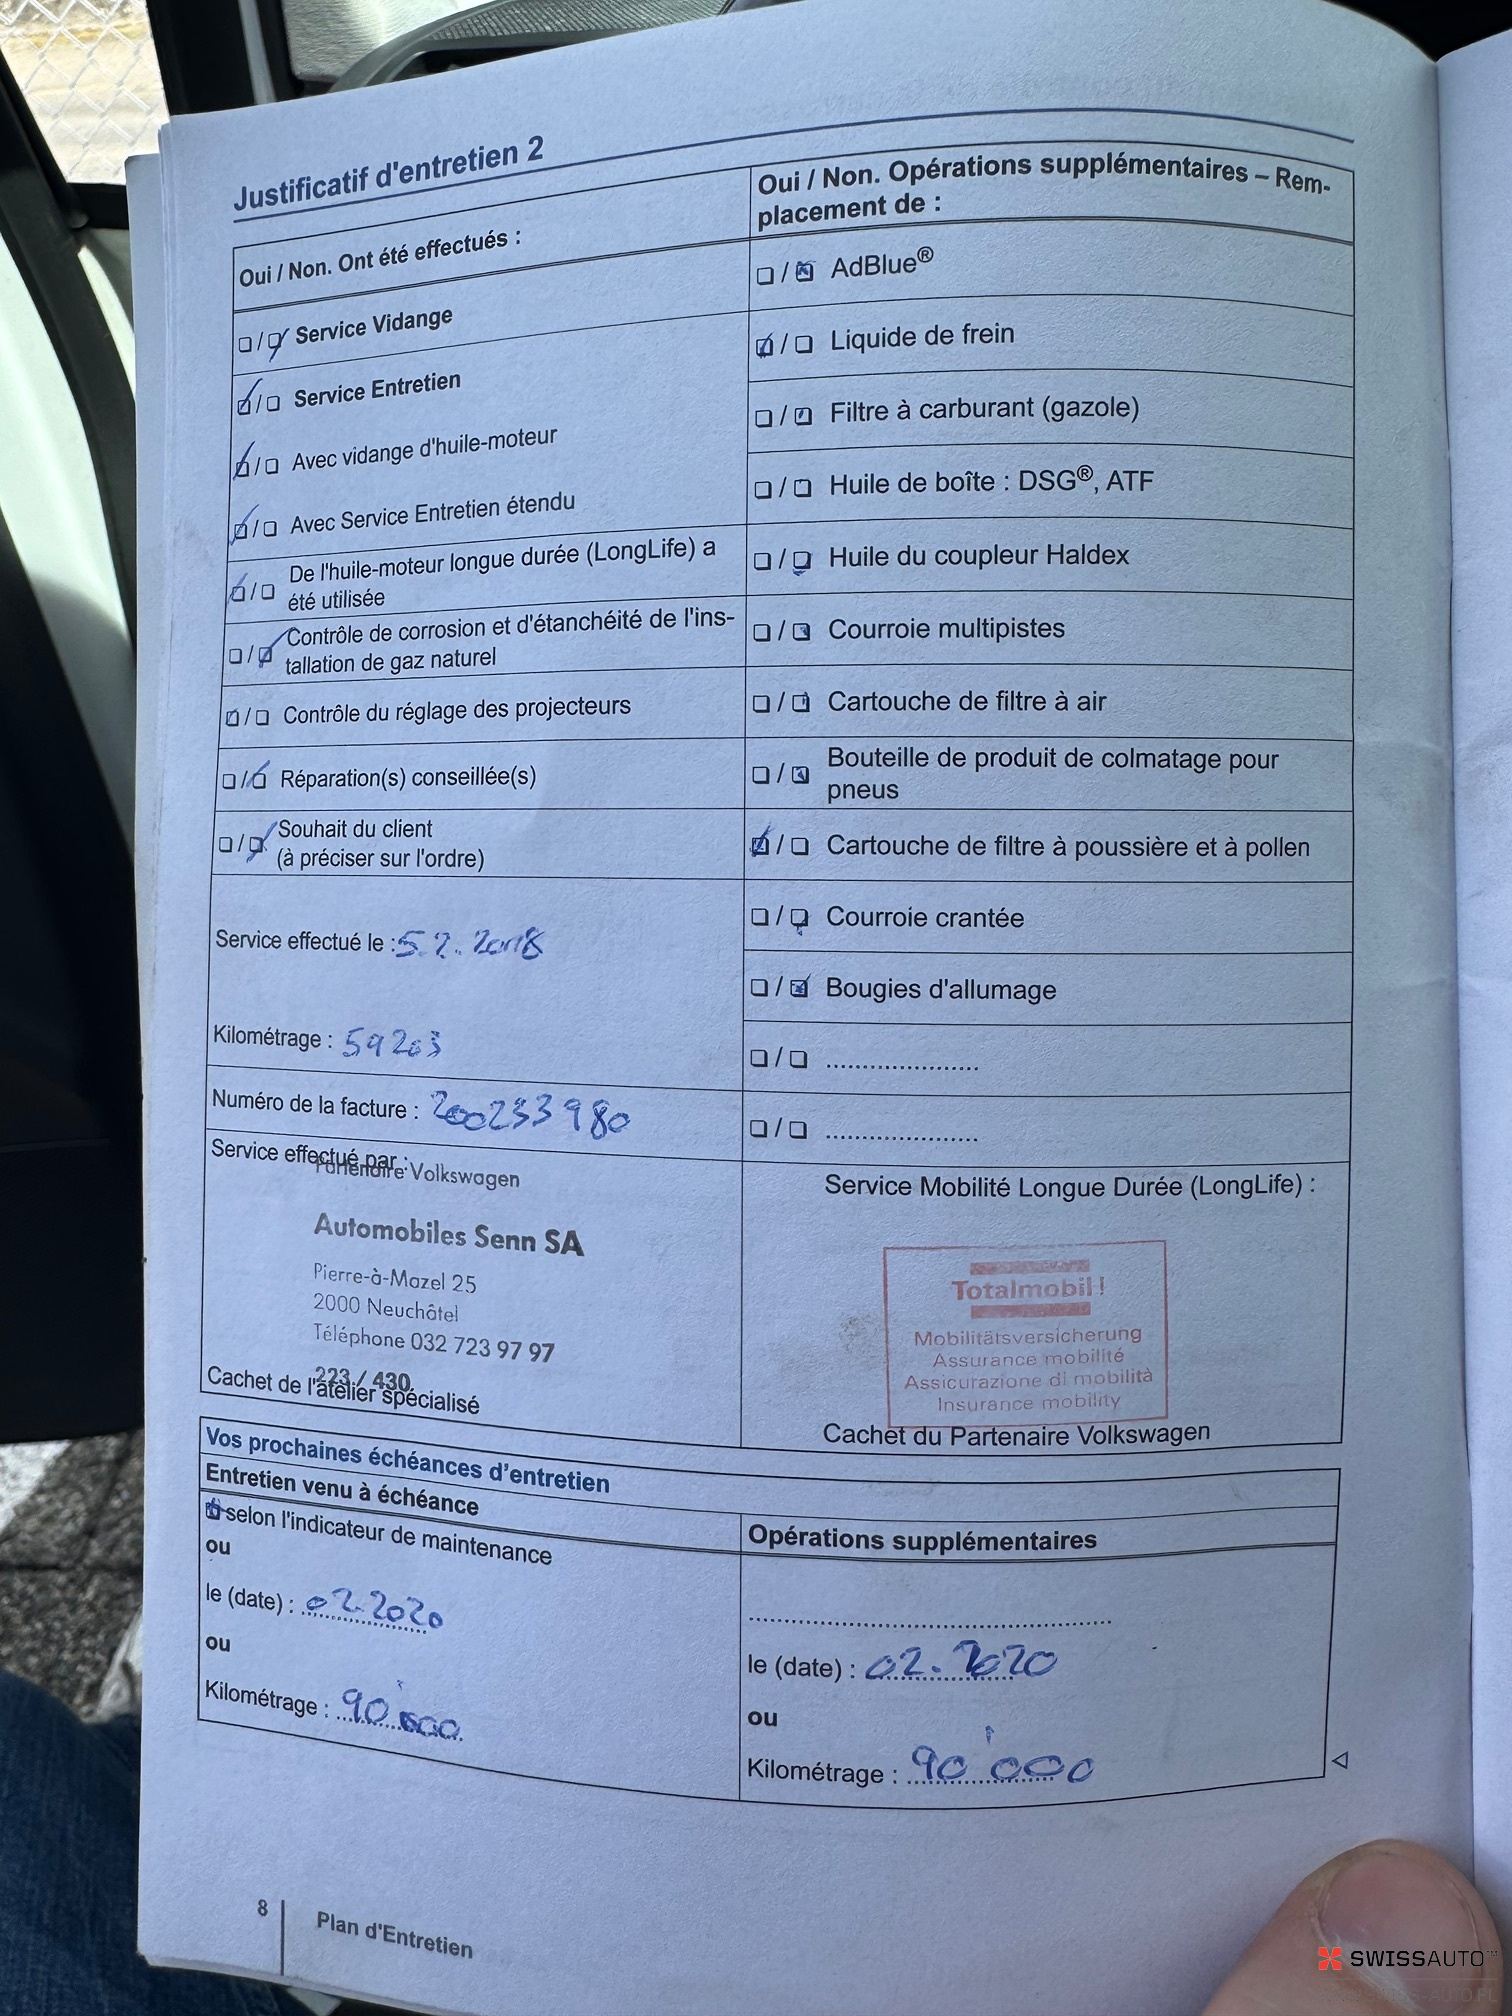 Justificatif d'entretien 2
Oui / Non. Ont été effectués :
Service Vidange
Service Entretien
Avec vidange d'huile-moteur
Avec Service Entretien étendu
De l'huile-moteur longue durée (LongLife) a
été utilisée
Contrôle de corrosion et d'étanchéité de l'ins-
tallation de gaz naturel
Contrôle du réglage des projecteurs
Réparation(s) conseillée(s)
Souhait du client
(à préciser sur l'ordre)
Service effectué le : 5.2.2018
Kilométrage : 59203
Numéro de la facture : 200233980
Service effectué par :
Partenaire Volkswagen
Automobiles Senn SA
Pierre-à-Mazel 25
2000 Neuchâtel
Téléphone 032 723 97 97
223 / 430
Cachet de l'atelier spécialisé
Oui / Non. Opérations supplémentaires – Rem-
placement de :
AdBlue®
Liquide de frein
Filtre à carburant (gazole)
Huile de boîte : DSG®, ATF
Huile du coupleur Haldex
Courroie multipistes
Cartouche de filtre à air
Bouteille de produit de colmatage pour
pneus
Cartouche de filtre à poussière et à pollen
Courroie crantée
Bougies d'allumage
Service Mobilité Longue Durée (LongLife) :
Totalmobil!
Mobilitätsversicherung
Assurance mobilité
Assicurazione di mobilità
Insurance mobility
Cachet du Partenaire Volkswagen
Vos prochaines échéances d'entretien
Entretien venu à échéance
selon l'indicateur de maintenance
ou
le (date) : 02.2020
ou
Kilométrage : 90'000
Opérations supplémentaires
le (date) : 02.2020
ou
Kilométrage : 90'000
8
Plan d'Entretien
SWISSAUTO™